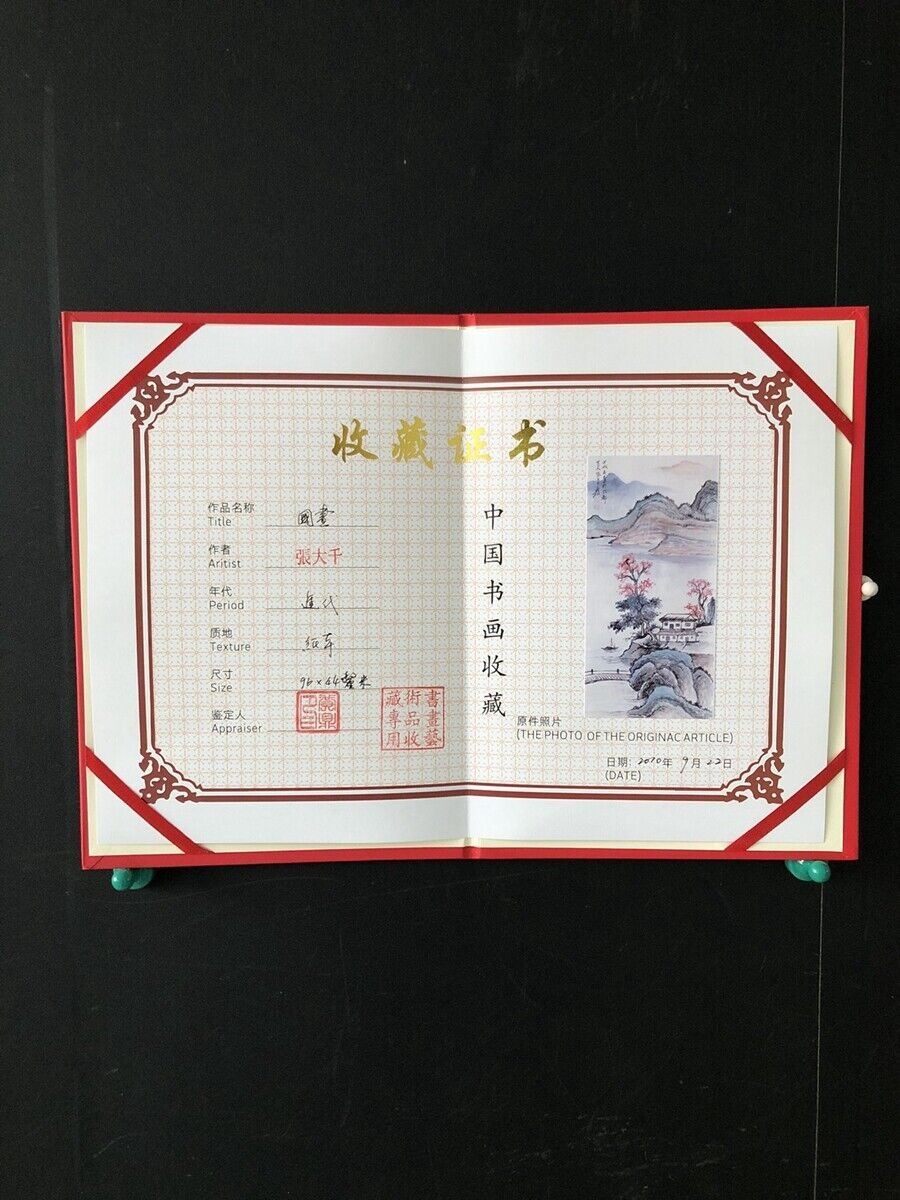 收藏证书
作品名称
Title 國畫
作者
Aritist 張大千
年代
Period 近代
质地
Texture 纸本
尺寸
Size 96×44厘米
鉴定人
Appraiser
書畫藝
術品收
藏專用
中国书画收藏
原件照片
(THE PHOTO OF THE ORIGINAC ARTICLE)
日期: 2010年9月22日
(DATE)